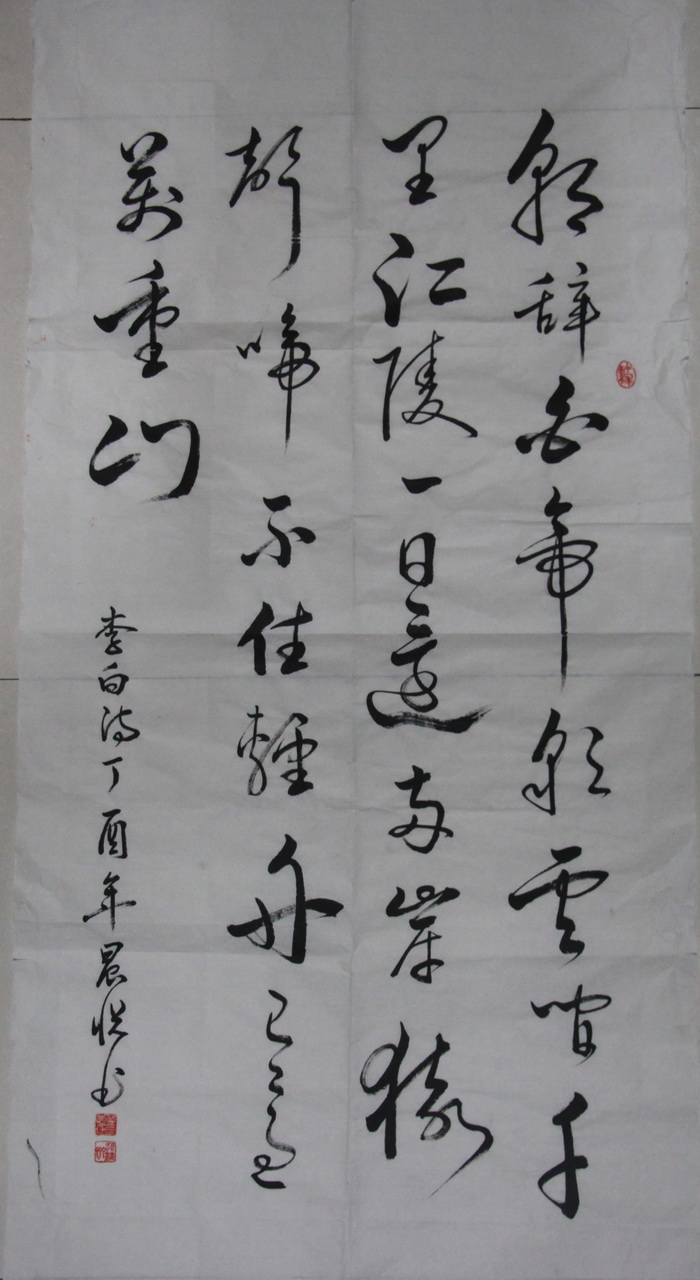 朝辞白帝彩云間千
里江陵一日還两岸猿
聲啼不住輕舟已過
萬重山
李白诗丁酉年晨悦书